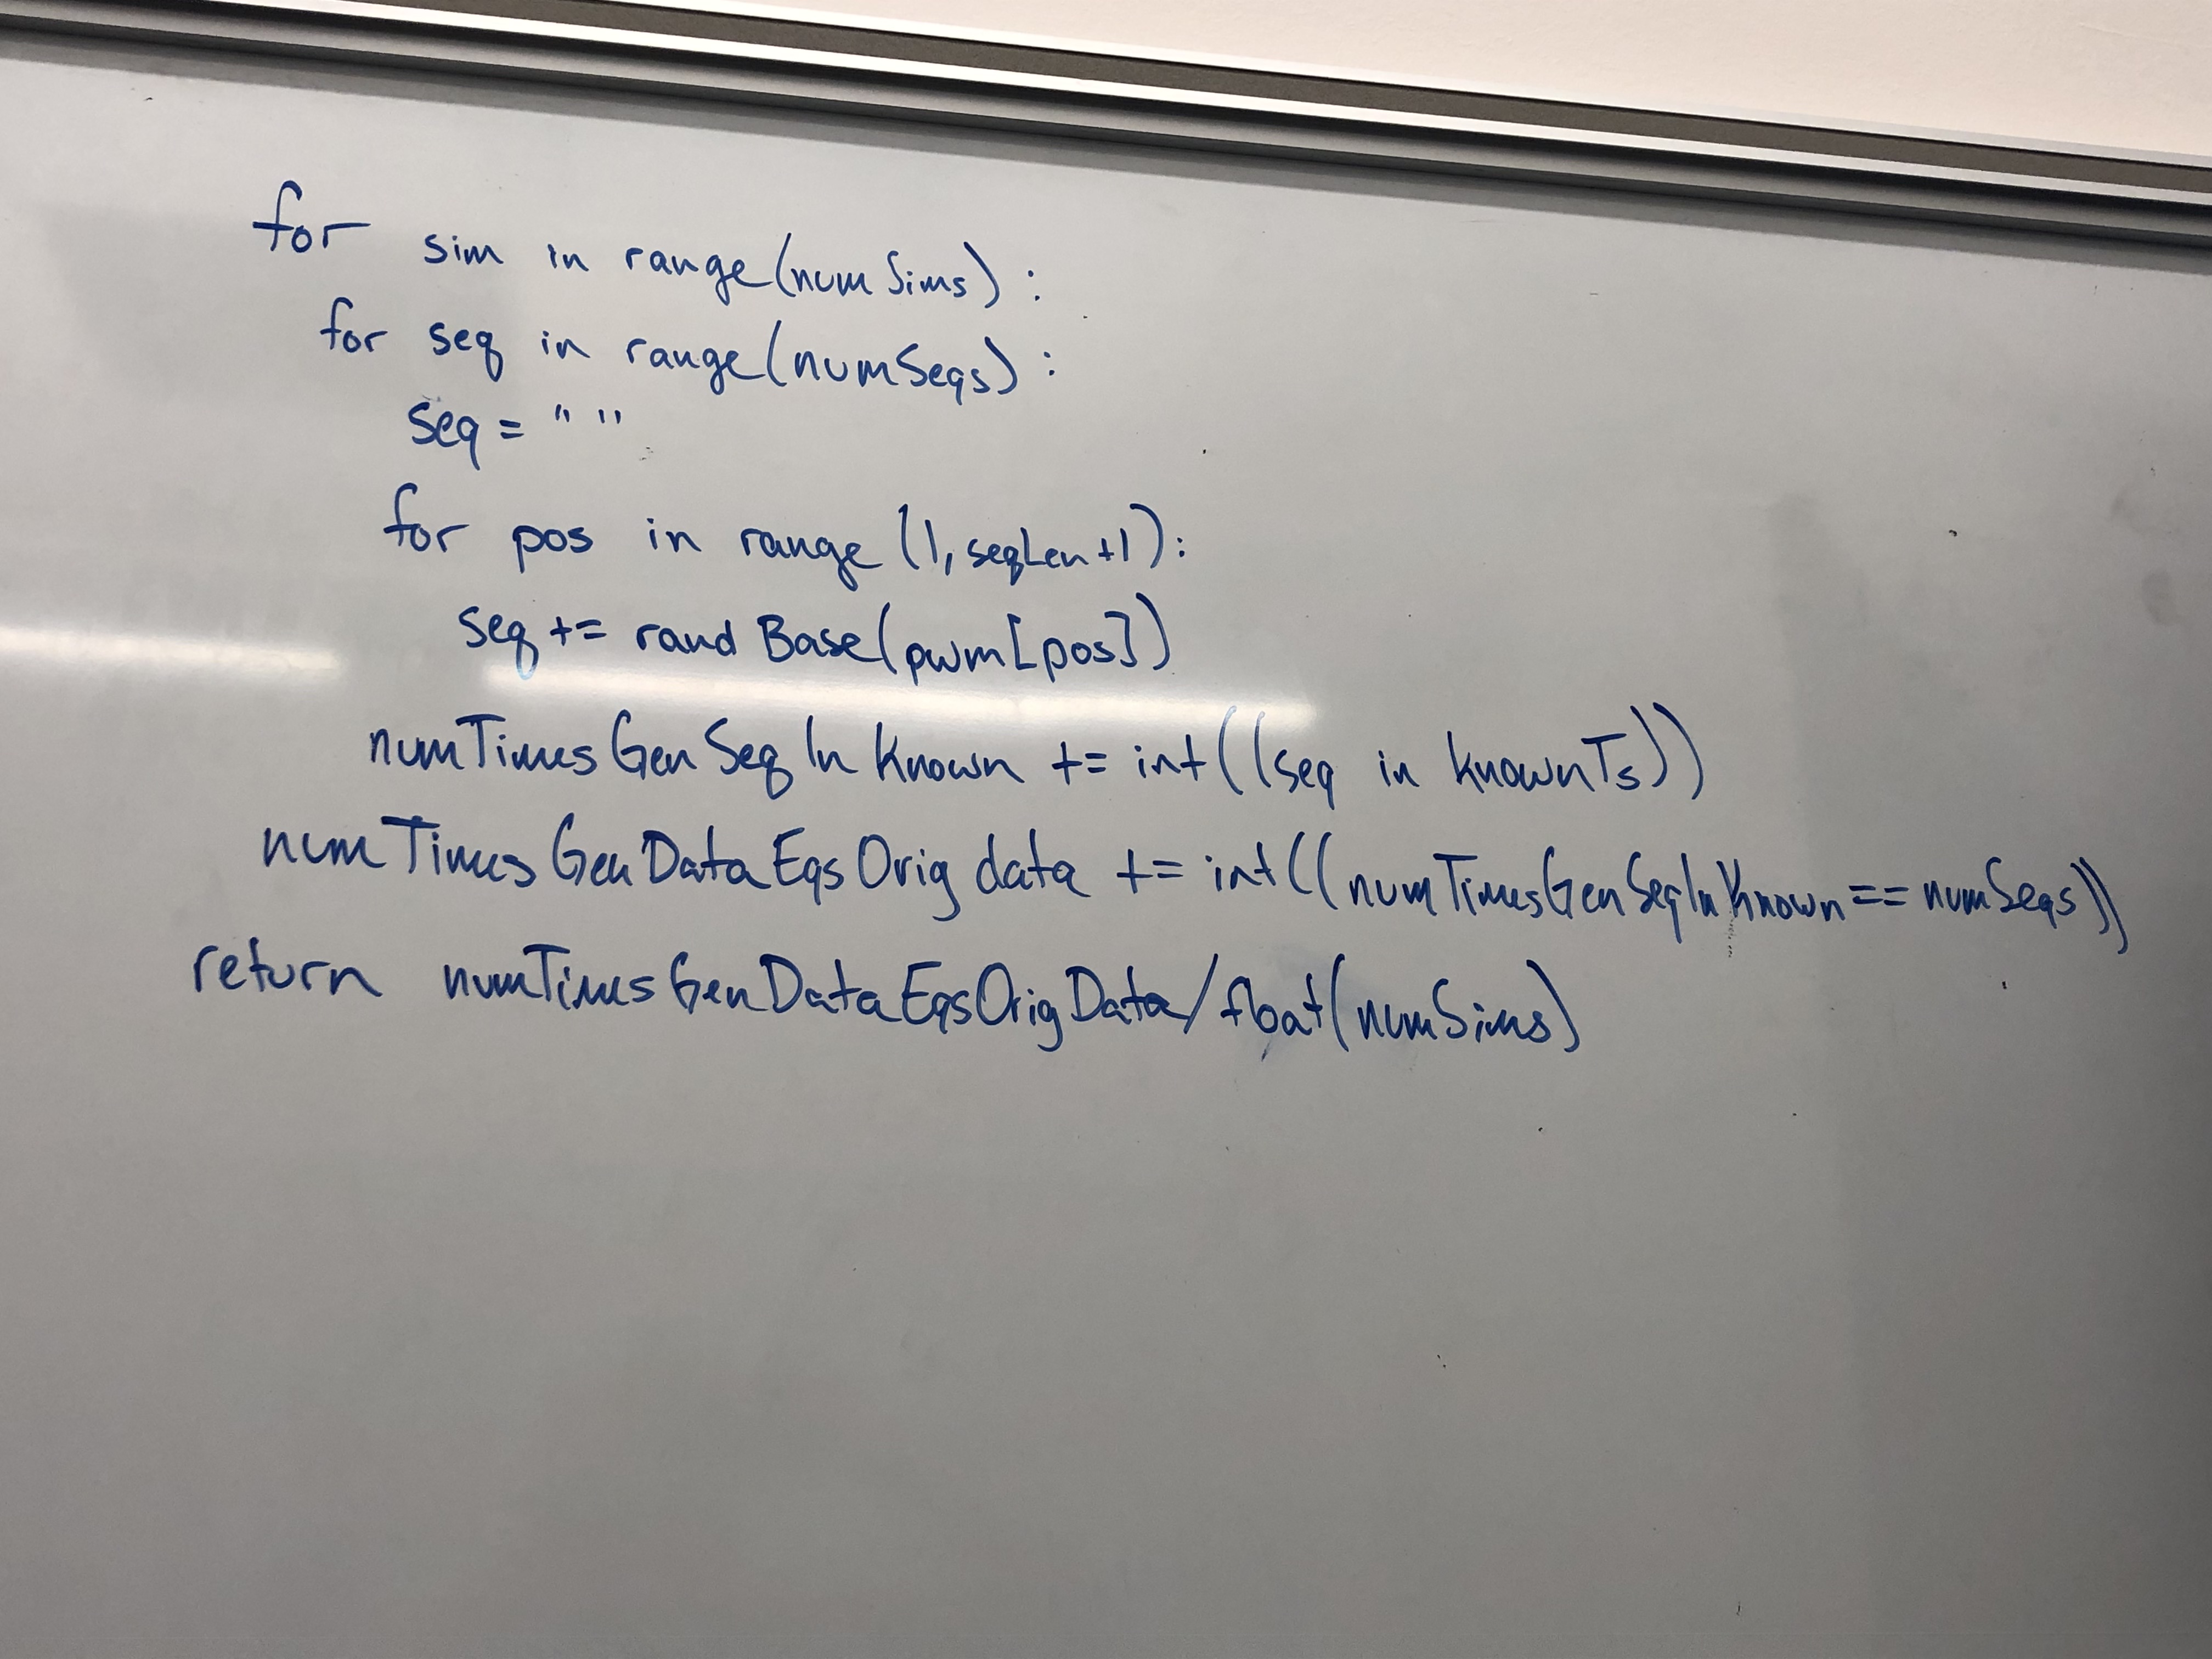 for sim in range(numSims):
for seq in range(numSeqs):
seq = " "
for pos in range (1, seqLen+1):
seq += randBase(pwm[pos])
numTimesGenSeqInKnown += int((seq in knownTs))
numTimesGenDataEqsOrigdata += int((numTimesGenSeqInKnown == numSeqs))
return numTimesGenDataEqsOrigData/float(numSims)